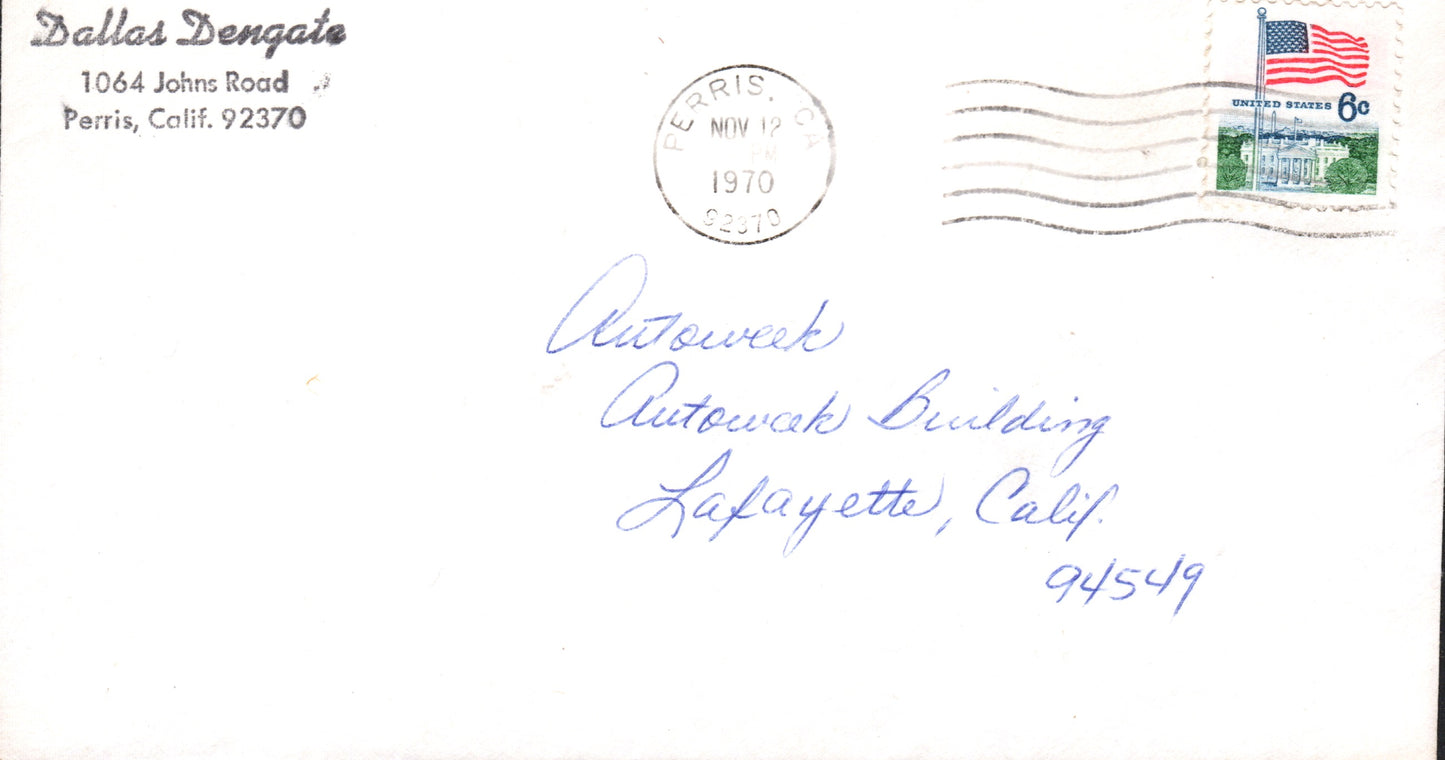 Dallas Dengate
1064 Johns Road
Perris, Calif. 92370
PERRIS, CA
NOV 12
PM
1970
92370
UNITED STATES 6c
Autoweek
Autoweek Building
Lafayette, Calif.
94549